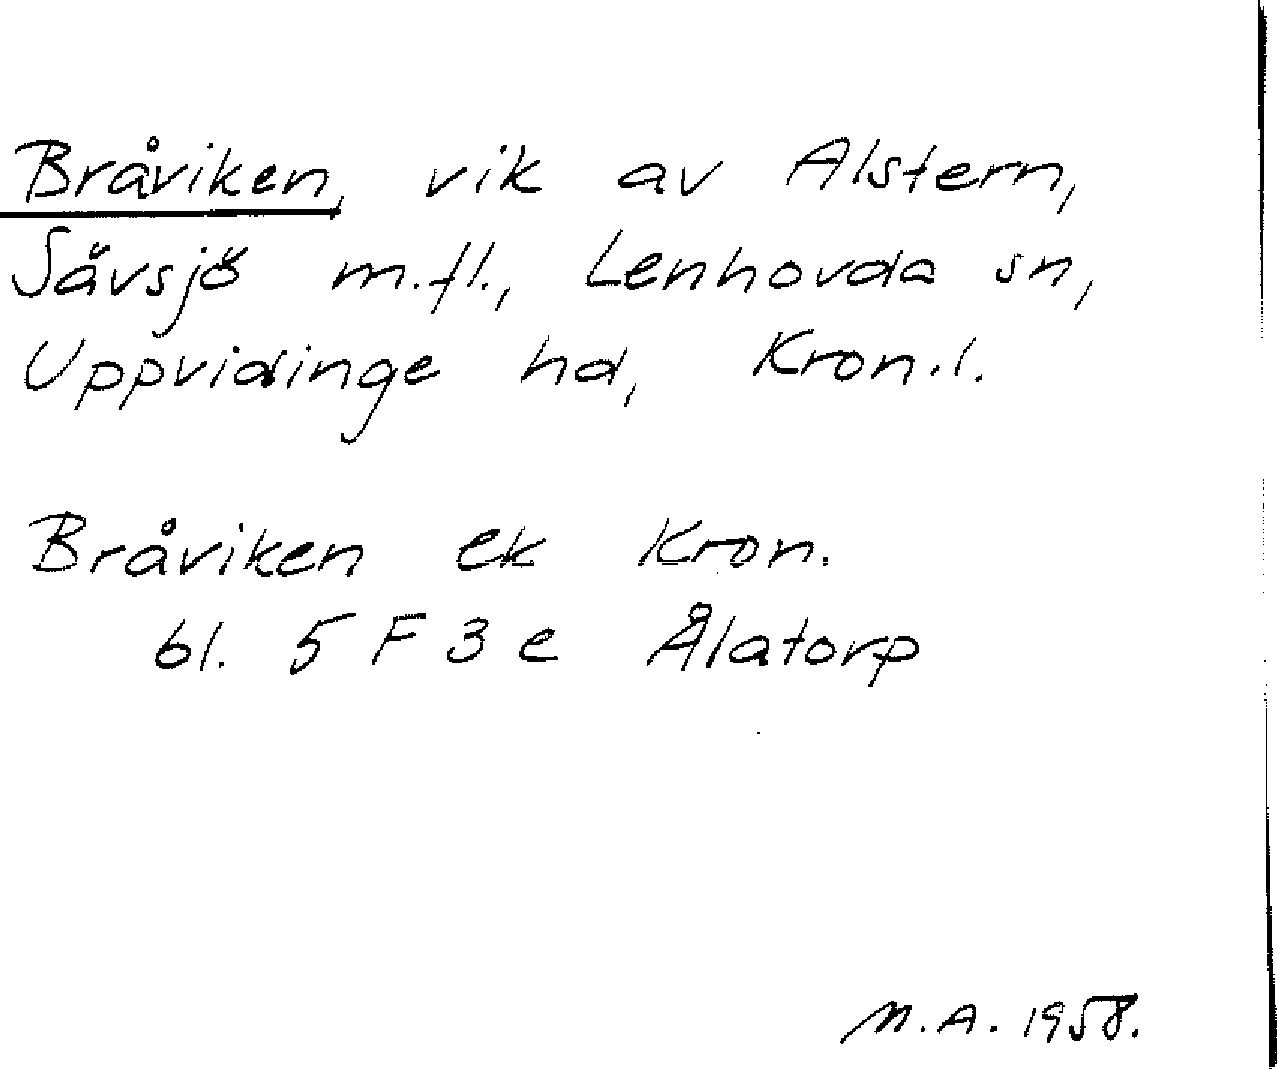 Bråviken, vik av Alstern,
Sävsjö m.fl., Lenhovda sn,
Uppvidinge hd, Kron.l.
Bråviken ek Kron.
bl. 5 F 3 e Ålatorp
M.A. 1958.